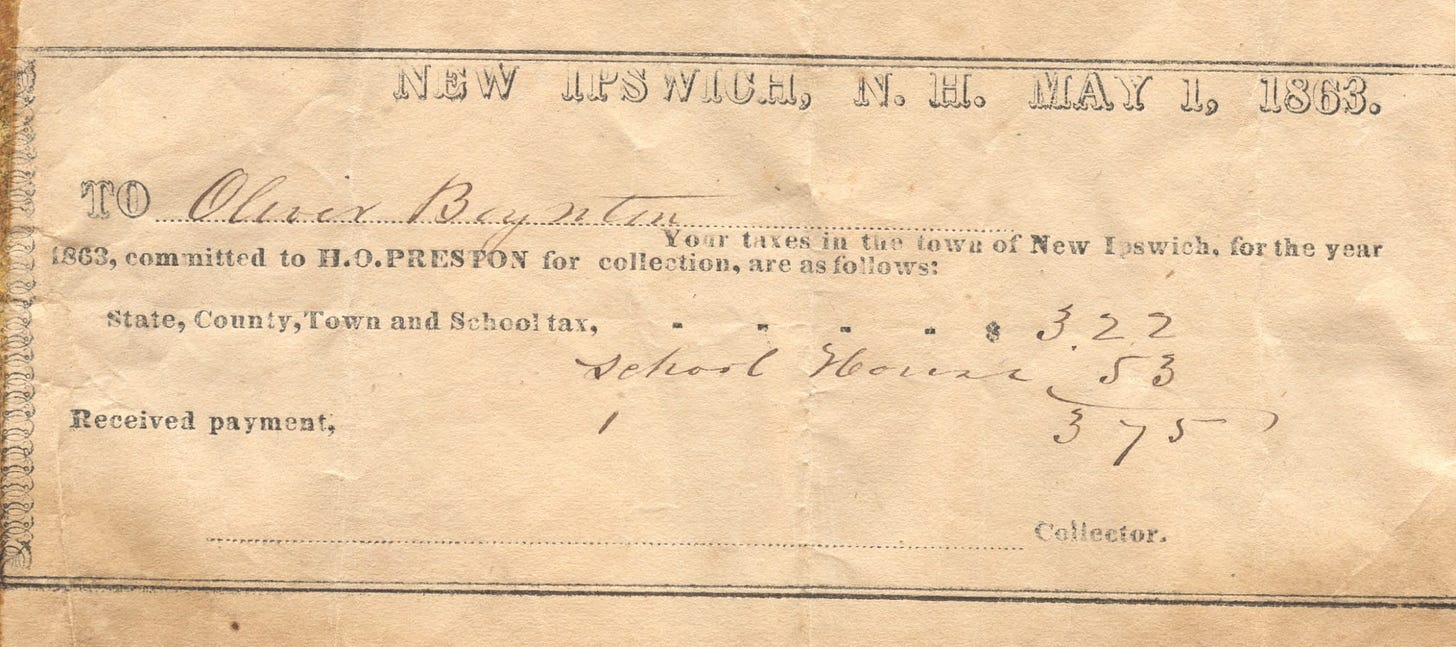 NEW IPSWICH, N. H. MAY 1, 1863.
TO Oliver Boynton
Your taxes in the town of New Ipswich, for the year
1863, committed to H.O.PRESTON for collection, are as follows:
State, County, Town and School tax, - - - - $ 3.22
School House 53
Received payment, 3 75
Collector.